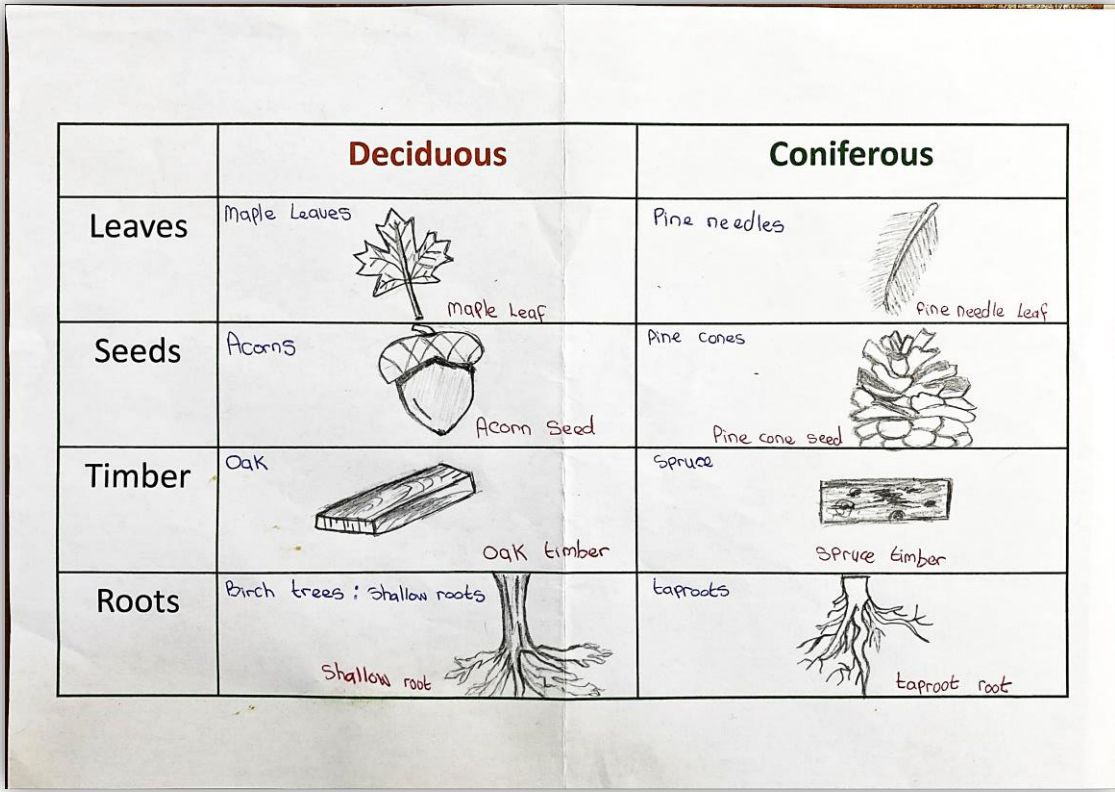 Deciduous
Coniferous
Leaves
Maple Leaves
Maple Leaf
Pine needles
Pine needle Leaf
Seeds
Acorns
Acorn Seed
Pine cones
Pine cone seed
Timber
Oak
Oak timber
Spruce
Spruce timber
Roots
Birch trees : Shallow roots
Shallow root
taproots
taproot root